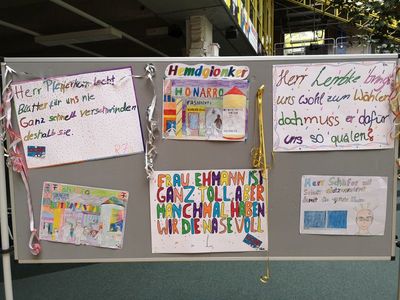 Herr Pfefferkorn
Blätter für uns nie
Ganz schnell verschwinden
deshalb sie.
R7a
Hemdglonker
HONARRO
Herr Lembke bringt
uns wohl zum Wählen
doch muss er dafür
uns so quälen?
FRAU EHMANN IST
GANZ TOLL ABER
MANCHMAL HABEN
WIR DIE NASE VOLL
Herr Schäfer